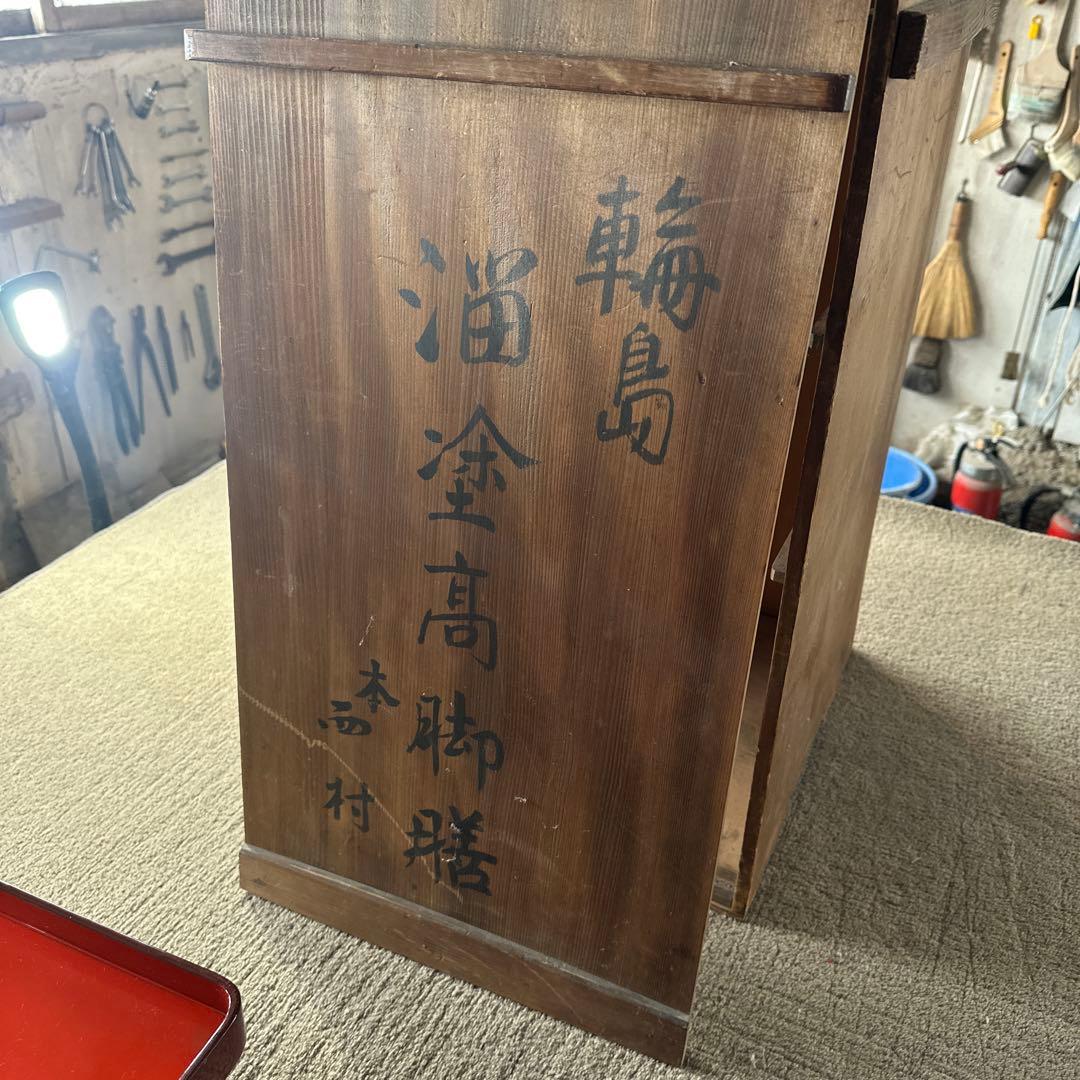 輪島
溜塗高脚膳
本西村